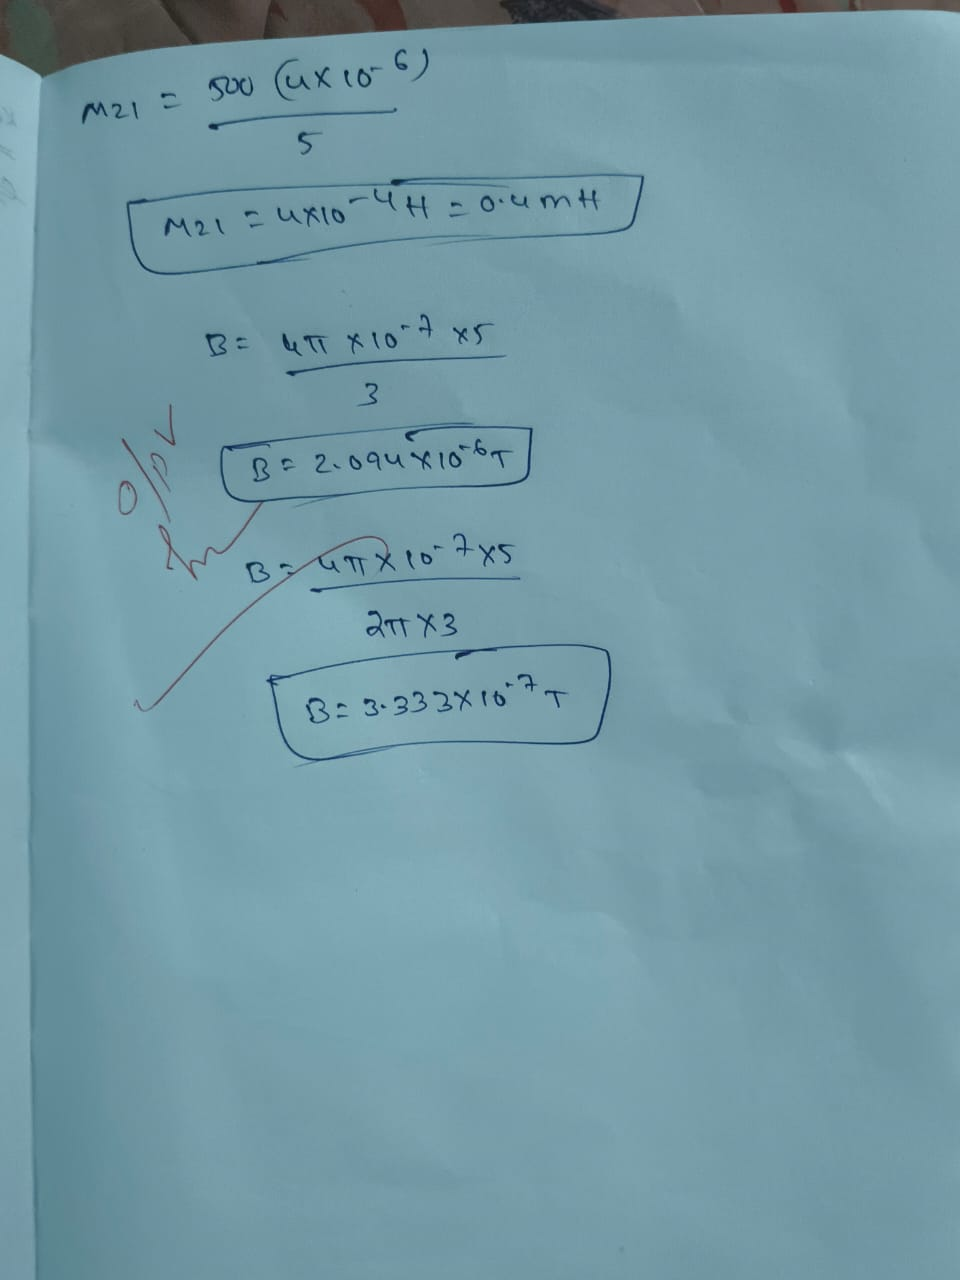 M21 = 500 (4×10-6)
5
M21 = 4×10-4 H = 0.4mH
B = 4π ×10-7 ×5
3
B = 2.094×10-6 T
O/P ✓
B = 4π×10-7×5
2π×3
B = 3.333×10-7 T